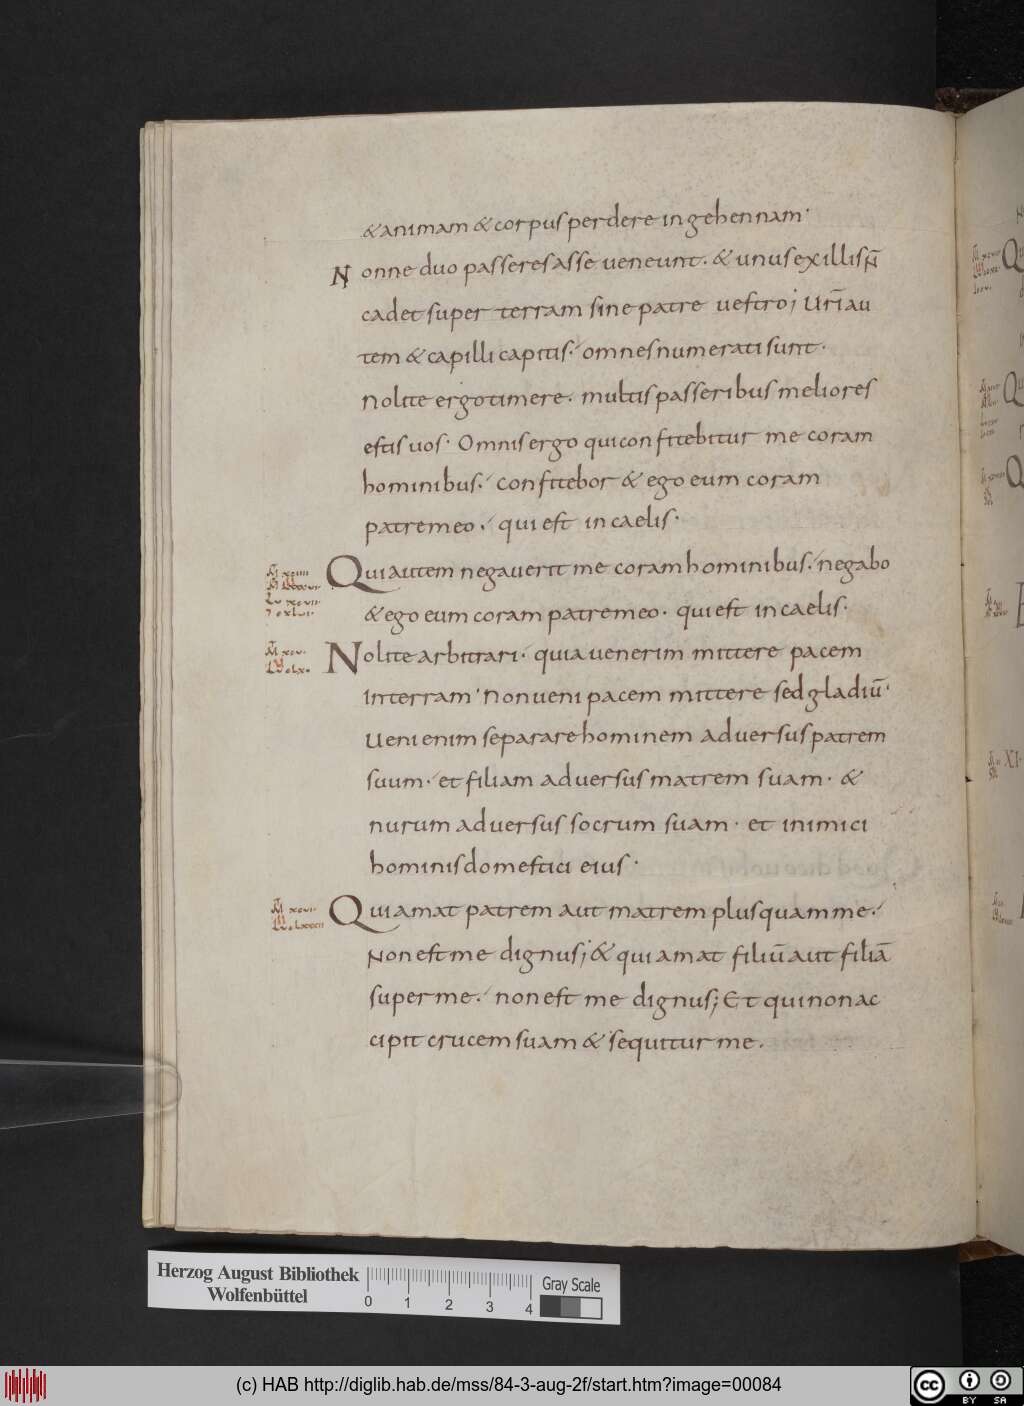 & animam & corpus perdere in gehennam·
Nonne duo passeres asse ueneunt· & unus ex illis n̄
cadet super terram sine patre uestro; Ur̄i au
tem & capilli capitis· omnes numerati sunt·
Nolite ergo timere· multis passeribus meliores
estis uos· Omnis ergo qui confitebitur me coram
hominibus· confitebor & ego eum coram
patre meo· qui est in caelis·
Qui autem negauerit me coram hominibus· negabo
& ego eum coram patre meo· qui est in caelis·
Nolite arbitrari· quia uenerim mittere pacem
in terram· Non ueni pacem mittere sed gladiū·
Ueni enim separare hominem aduersus patrem
suum· et filiam aduersus matrem suam· &
nurum aduersus socrum suam· et inimici
hominis domestici eius·
Qui amat patrem aut matrem plus quam me·
Non est me dignus; & qui amat filiū aut filiā
super me· non est me dignus; Et qui non ac
cipit crucem suam & sequitur me·
Herzog August Bibliothek
Wolfenbüttel
0 1 2 3 4
Gray Scale
(c) HAB http://diglib.hab.de/mss/84-3-aug-2f/start.htm?image=00084
cc BY SA